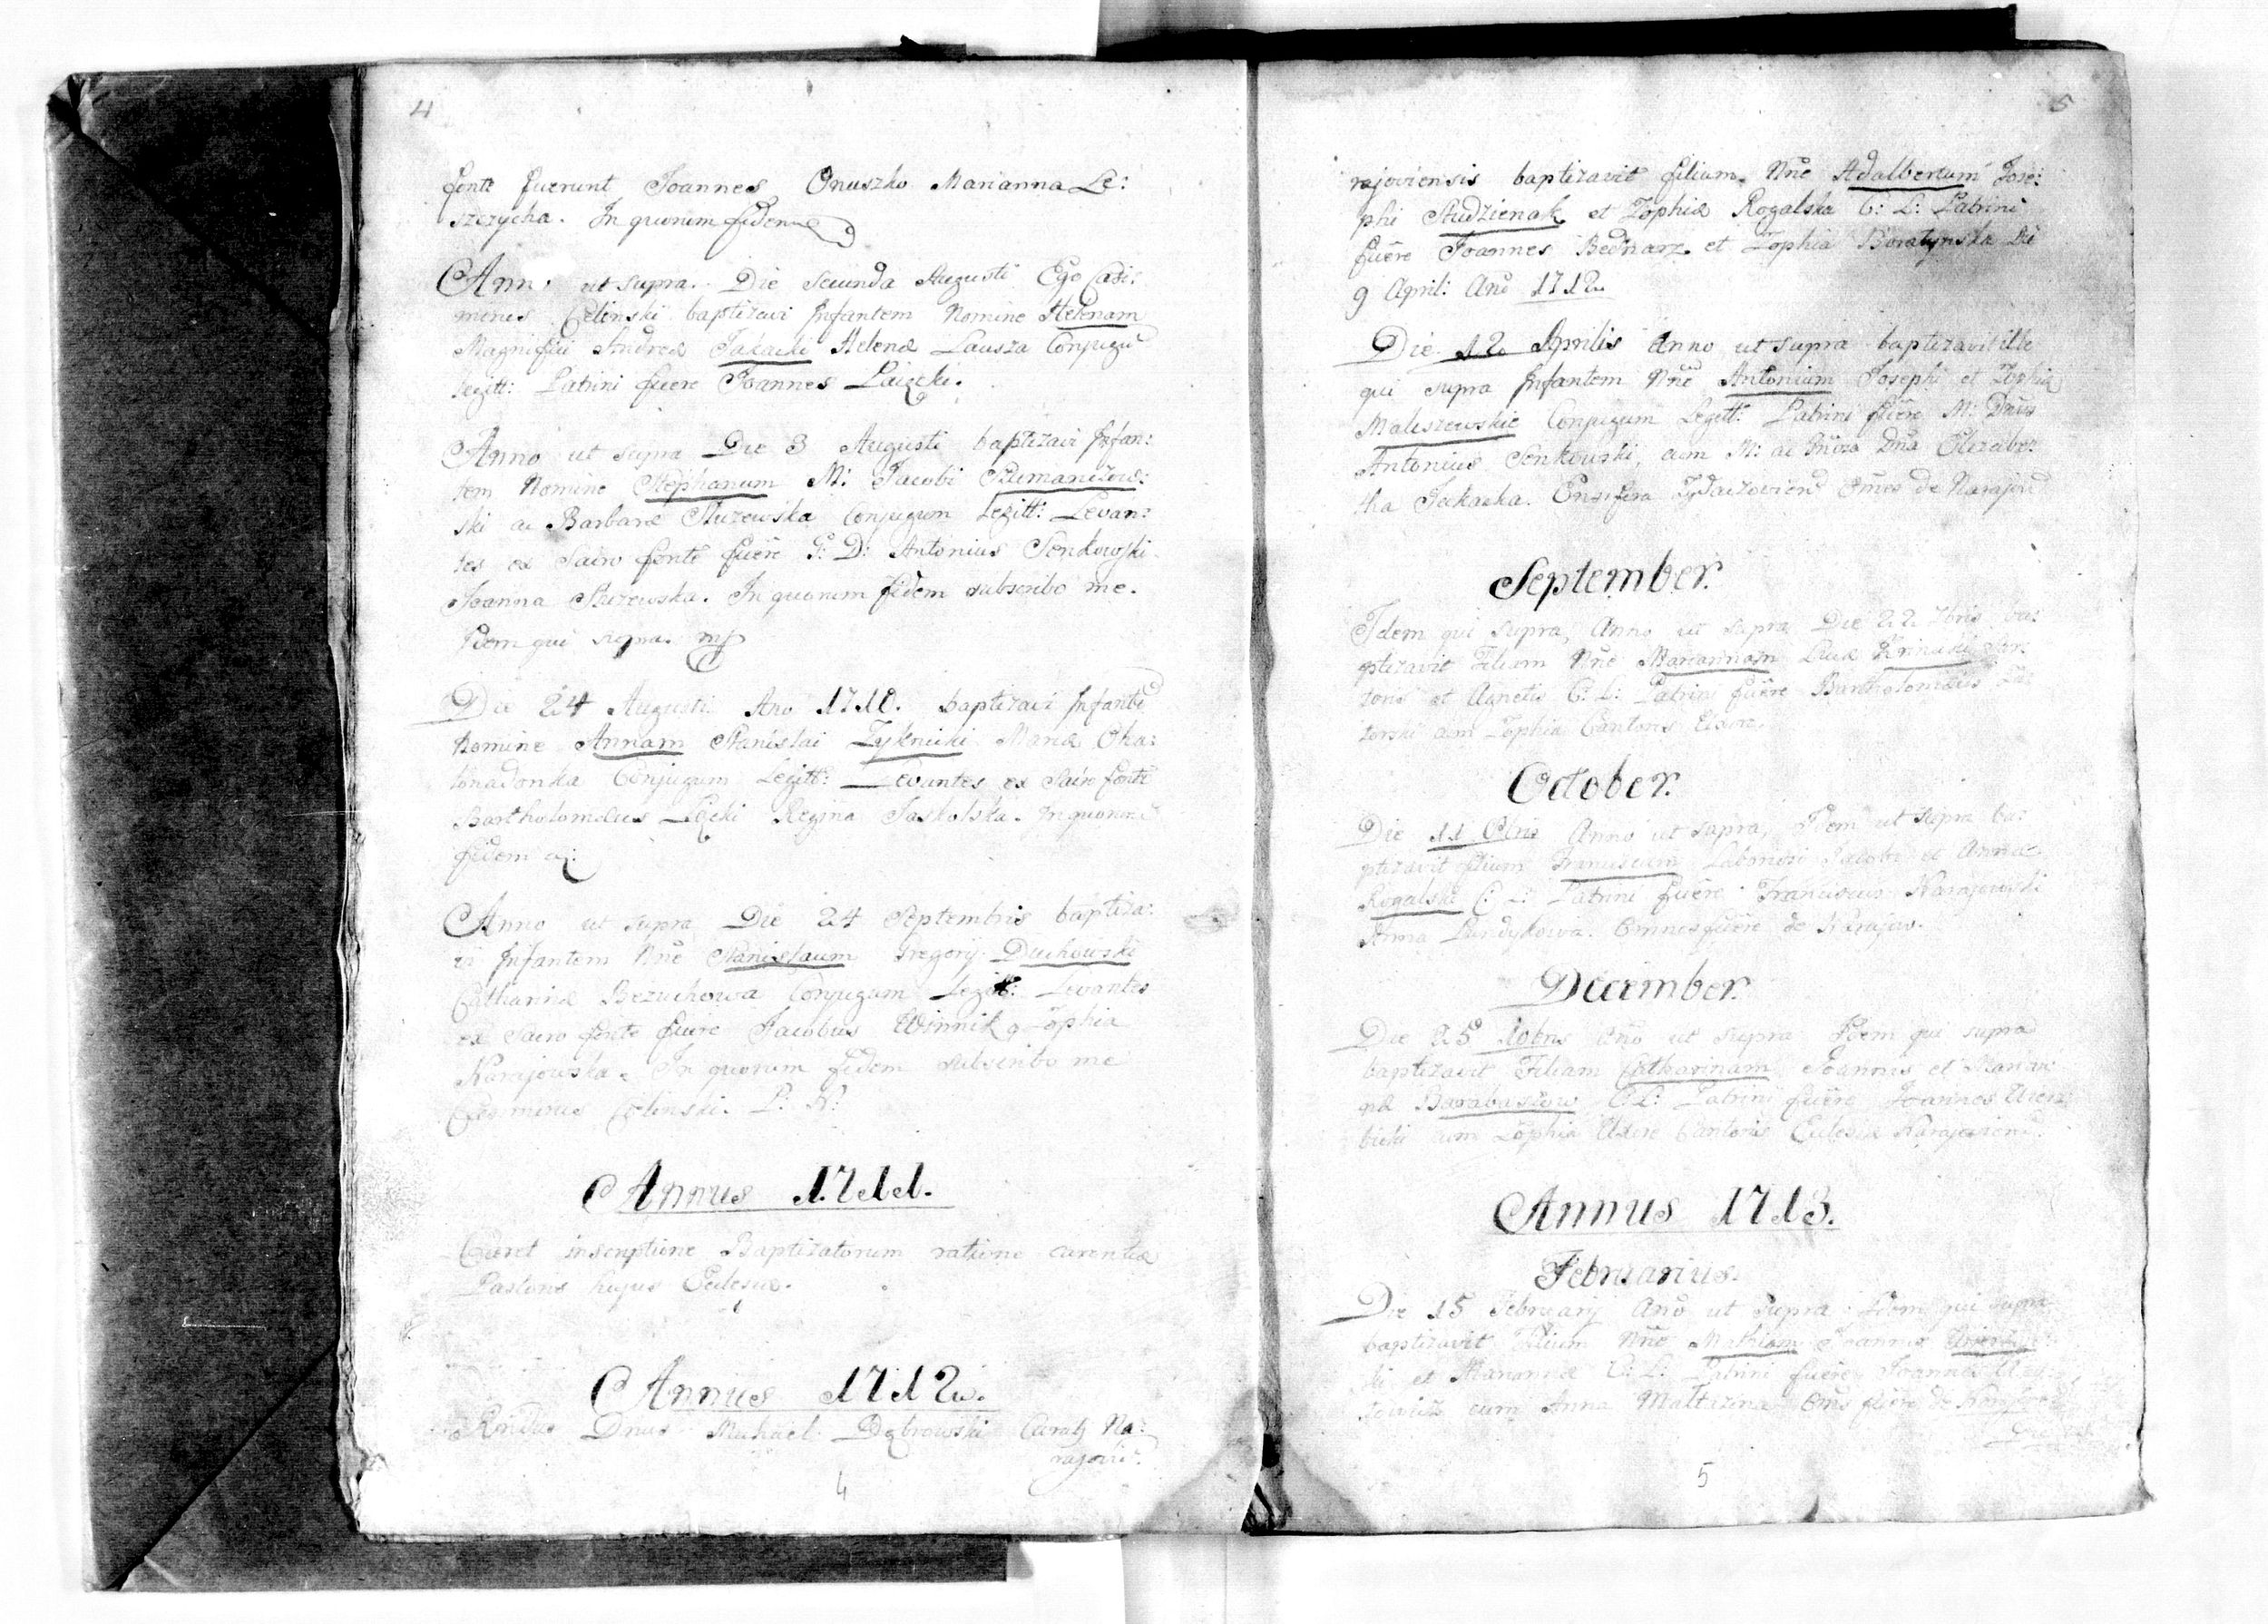 4
fonte fuerunt Joannes Onuszko Marianna Le:
szczycha. In quorum fidem
Anno ut supra. Die secunda Augusti Ego Casi:
mirus Celinski baptizavi Infantem Nomine Helenam
Magnifici Andreæ Jakacki Helenæ Lausza Conjugu
legitt: Patrini fuere Joannes
Anno ut supra Die 3 Augusti baptizavi Infan:
tem Nomine Stephanum M: Jacobi Szumanczow:
ski ac Barbaræ Stuzewska Conjugum Legitt: Levan:
tes ex Sacro fonte fuêre G: D: Antonius Senkowski
Joanna Stuzewska. In quorum fidem subscribo me.
Idem qui supra. mp
Die 24 Augusti Ano 1710. baptizavi Infante
Nomine Annam Stanislai Zyknicki Mariæ Cha:
Conjugum Legitt: Levantes ex Sacro fonte
Bartholomæus Regina Jaskolska. In quorum
fidem
Anno ut supra Die 24 Septembris baptiza:
vi Infantem Nne Stanislaum Gregorij Duchowski
Catharinæ Bezuchowa Conjugum Legitt: Levantes
ex Sacro fonte fuere Jacobus Winnik Zophia
Narajowska. In quorum fidem subscribo me
Casimirus Celinski.
Annus 1711.
Caret inscriptione Baptizatorum ratione carentiæ
Pastoris hujus Eclesiæ.
Annus 1712.
Rndus Dnus Michael Dąbrowski Curatg Na:
rajovi:
4
5
rajoviensis baptizavit filium Nne Adalbertum Jose:
phi Studzienak et Zophiæ Rogalska C: L: Patrini
fuêre Joannes Bednarz et Zophia Boratynska Die
9 April: Ano 1712.
Die 12 Aprilis Anno ut supra baptizavit ille
qui supra Infantem Nne Antonium Josephi et Zophiæ
Maliszewskie Conjugum Legitt: Patrini fuêre M: Dnus
Antonius Senkowski, cum M: ac Dna Elizabe:
tha Jakacka. Ensifera omnes de Narajow
September.
Idem qui supra, Anno ut supra Die 22 7bris ba:
ptizavit Filiam Nne Mariannam Lucæ Krinicki
et Agnetis C: L: Patrini fuêre Bartholomæus
cum Zophia Cantoris Uxore.
October.
Die 11 8bris Anno ut supra, Idem ut supra ba:
ptizavit filium Franciscum Jacobi et Annæ
Rogalski C: L: Patrini fuêre Franciscus Narajowski
Anna Omnes fuêre de Narajow.
December.
Die 25 10bris Ano ut supra Idem qui supra
baptizavit Filiam Catharinam Joannis et Marian:
næ Barabaszow C: L: Patrini fuêre Joannes Wierz:
bicki cum Zophia Uxore Cantoris Eclesiæ Narajoviens.
Annus 1713.
Februarius.
Die 15 Februarij Ano ut supra Idem qui supra
baptizavit Filium Nne Mathiam Joannis
ki et Mariannæ C: L: Patrini fuêre Joannes
cum Anna omnes fuêre de Narajow
Die
5